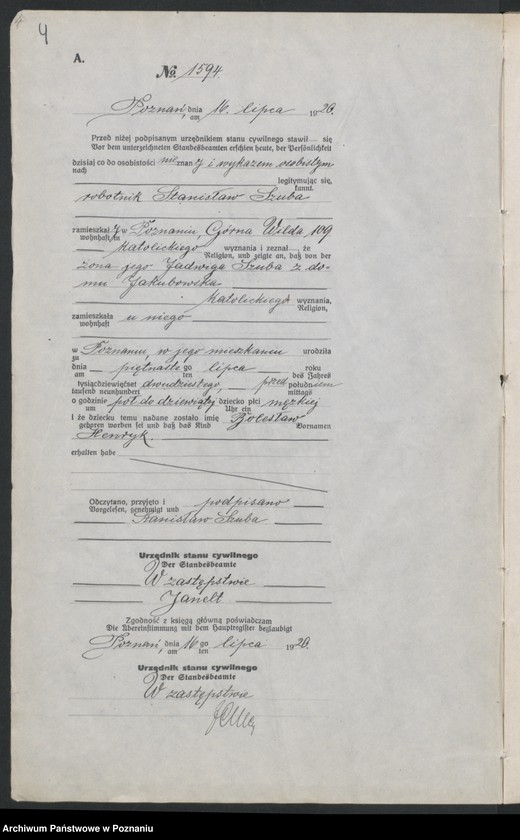 4
A.
№ 1594.
Poznań, dnia 16. lipca 1920.
am
Przed niżej podpisanym urzędnikiem stanu cywilnego stawił się
Vor dem unterzeichneten Standesbeamten erschien heute, der Persönlichkeit
dzisiaj co do osobistości nieznany i wykazem osobistym
nach
legitymując się,
kannt.
robotnik Stanisław Szuba
zamieszkały w Poznaniu, Górna Wilda 109
wohnhaft in
katolickiego wyznania i zeznał, że
Religion, und zeigte an, daß von der
żona jego Jadwiga Szuba z do-
mu Jakubowska
katolickiego wyznania,
Religion,
zamieszkała u niego
wohnhaft
w Poznaniu, w jego mieszkaniu urodziła
zu
dnia piętnastego lipca roku
am ten des Jahres
tysiącdziewięćset dwudziestego, przed południem
tausend neunhundert mittags
o godzinie pół do dziewiątej dziecko płci męzkiej
um Uhr ein
i że dziecku temu nadane zostało imię Bolesław
geboren worden sei und daß das Kind Vornamen
Henryk.
erhalten habe
Odczytano, przyjęto i podpisano
Vorgelesen, genehmigt und
Stanisław Szuba
Urzędnik stanu cywilnego
Der Standesbeamte
W zastępstwie
Janelt
Zgodność z księgą główną poświadczam
Die Übereinstimmung mit dem Hauptregister beglaubigt
Poznań, dnia 16 go lipca 1920.
am ten
Urzędnik stanu cywilnego
Der Standesbeamte
W zastępstwie
Archiwum Państwowe w Poznaniu